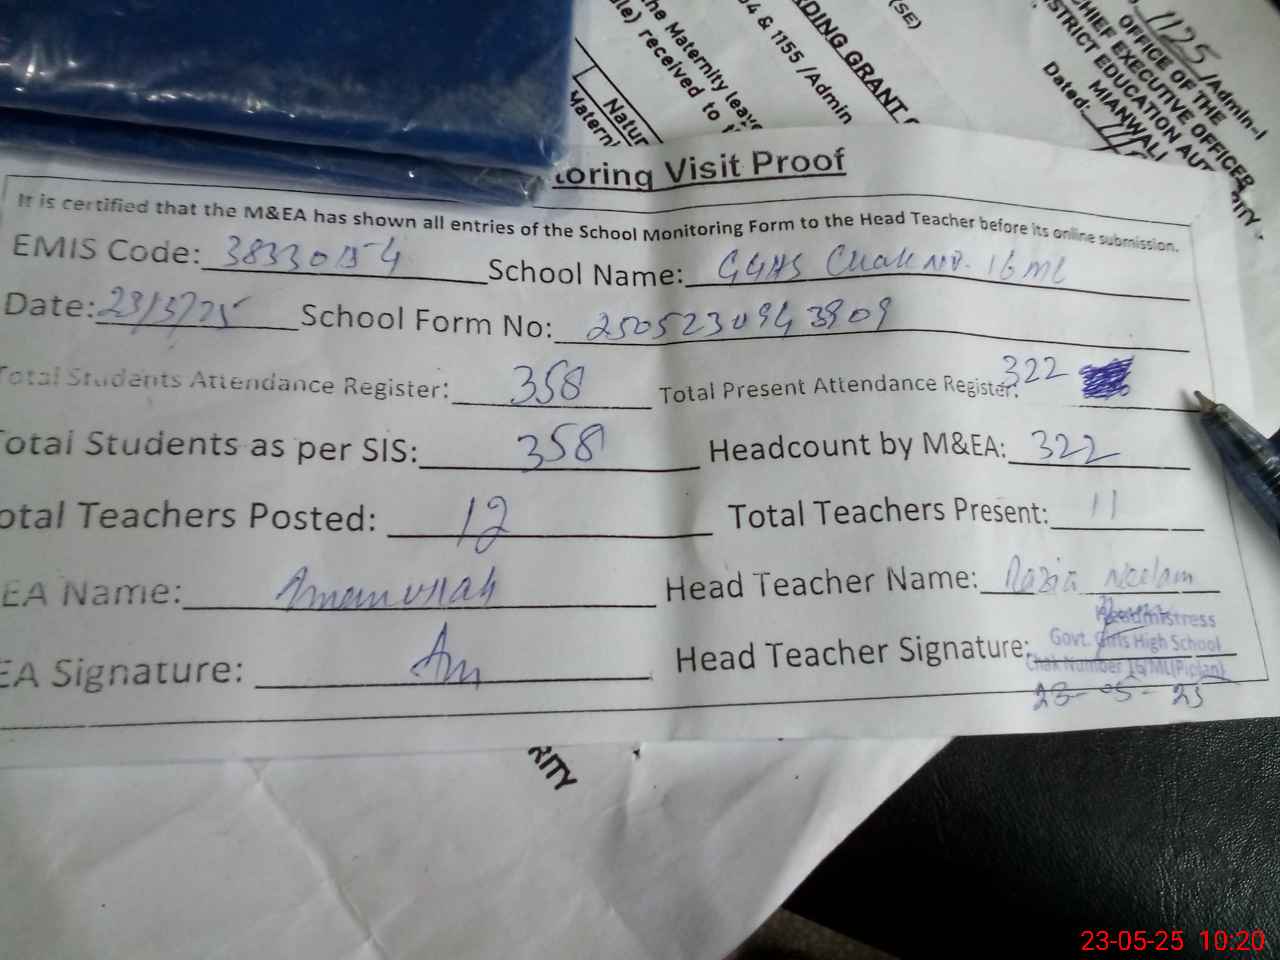 (SE)
1125/Admin-I
OFFICE OF THE
CHIEF EXECUTIVE OFFICER
DISTRICT EDUCATION AUT
MIANWALI
Dated:
RDING GRANT
& 1155 /Admin
he Maternity leave
received to
Natur
Matern
toring Visit Proof
It is certified that the M&EA has shown all entries of the School Monitoring Form to the Head Teacher before its online submission.
EMIS Code: School Name: GGHS Chak No. 16 ML
Date: 23/5/25 School Form No: 2505230943909
Total Students Attendance Register: 358 Total Present Attendance Register: 322
Total Students as per SIS: 358 Headcount by M&EA: 322
otal Teachers Posted: 12 Total Teachers Present: 11
EA Name: Amanullah Head Teacher Name: Razia Neelam
EA Signature: Head Teacher Signature:
Headmistress
Govt. Girls High School
Chak Number 16/ML(Piplan)
RITY
23-05-25 10:20